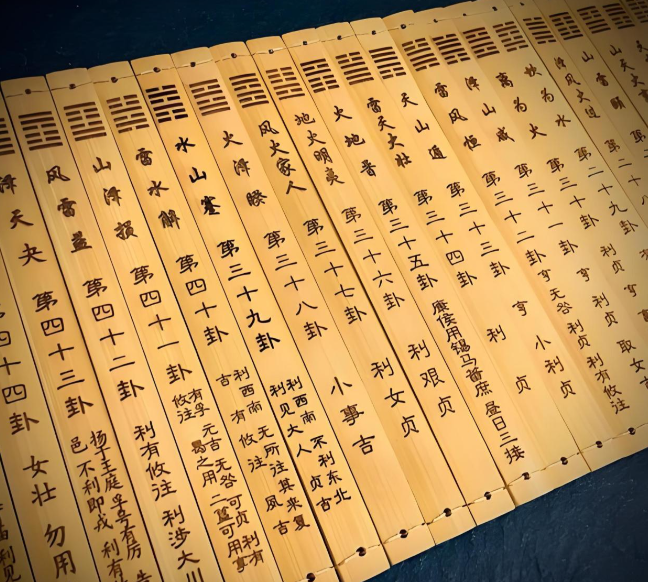 山雷颐
泽风大过
坎为水
离为火
泽山咸
第三十二卦
亨小利贞
雷风恒
第三十三卦
利贞
天山遁
第三十四卦
康侯用锡马蕃庶昼日三接
雷天大壮
第三十五卦
利艰贞
火地晋
第三十六卦
利女贞
地火明夷
第三十七卦
小事吉
风火家人
第三十八卦
利西南不利东北
利见大人贞吉
火泽睽
第三十九卦
利西南无所注其来复
吉有攸注夙吉
水山蹇
第四十卦
有孚元吉无咎可贞利有
攸注曷之用二簋可用享
雷水解
第四十一卦
利有攸注利涉大川
山泽损
第四十二卦
扬于王庭孚号有厉告
邑不利即戎利有
风雷益
第四十三卦
女壮勿用
泽天夬
四十四卦
利见